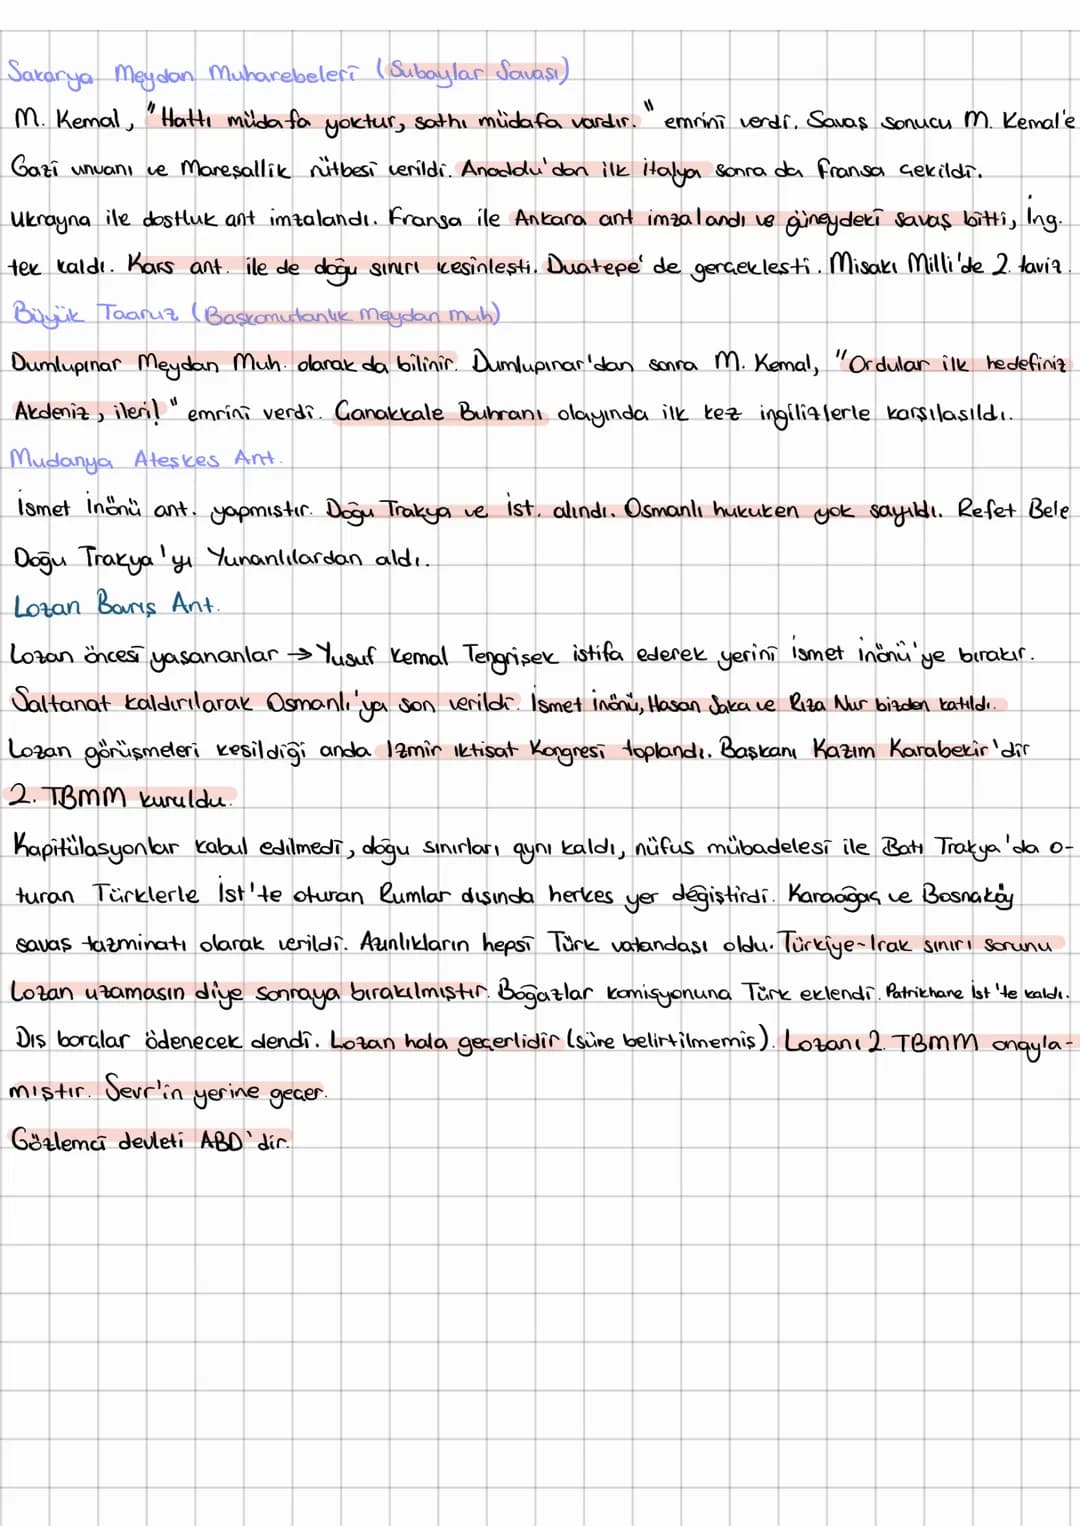 Sakarya Meydan Muharebeleri (Subaylar Savası)
M. Kemal, "Hattı müdafa yoktur, sathı müdafa vardır." emrini verdi. Savas sonucu M. Kemal'e
Gazi unvanı ve Mareşallik rütbesi verildi. Anadolu'dan ilk İtalya sonra da Fransa çekildi.
Ukrayna ile dostluk ant imzalandı. Fransa ile Ankara ant imzalandı ve güneydeki savaş bitti, İng.
tek kaldı. Kars ant. ile de doğu sınırı kesinleşti. Duatepe' de gerçekleşti. Misakı Milli'de 2. taviz.
Büyük Taaruz (Başkomutanlık Meydan muh)
Dumlupınar Meydan Muh. olarak da bilinir. Dumlupınar'dan sonra M. Kemal, "Ordular ilk hedefiniz
Akdeniz, ileri!" emrini verdi. Çanakkale Buhranı olayında ilk kez ingilizlerle karşılaşıldı.
Mudanya Ateşkes Ant.
İsmet İnönü ant. yapmıştır. Doğu Trakya ve İst. alındı. Osmanlı hukuken yok sayıldı. Refet Bele
Doğu Trakya'yı Yunanlılardan aldı.
Lozan Barış Ant.
Lozan öncesi yaşananlar → Yusuf Kemal Tengrişek istifa ederek yerini ismet inönü'ye bırakır.
Saltanat kaldırılarak Osmanlı'ya son verildi. İsmet inönü, Hasan Saka ve Rıza Nur bizden katıldı.
Lozan görüşmeleri kesildiği anda İzmir ıktisat Kongresi toplandı. Başkanı Kazım Karabekir'dir
2. TBMM kuruldu.
Kapitülasyonlar kabul edilmedi, doğu sınırları aynı kaldı, nüfus mübadelesi ile Batı Trakya'da o-
turan Türklerle İst'te oturan Rumlar dışında herkes yer değiştirdi. Karaağaç ve Bosnaköy
savaş tazminatı olarak verildi. Azınlıkların hepsi Türk vatandası oldu. Türkiye-Irak sınırı sorunu
Lozan uzamasın diye sonraya bırakılmıştır. Boğazlar komisyonuna Türk eklendi. Patrikhane İst'te kaldı.
Dıs borçlar ödenecek dendi. Lozan hala geçerlidir (süre belirtilmemiş). Lozanı 2. TBMM onayla-
mıştır. Sevr'in yerine geçer.
Gözlemci devleti ABD'dir.